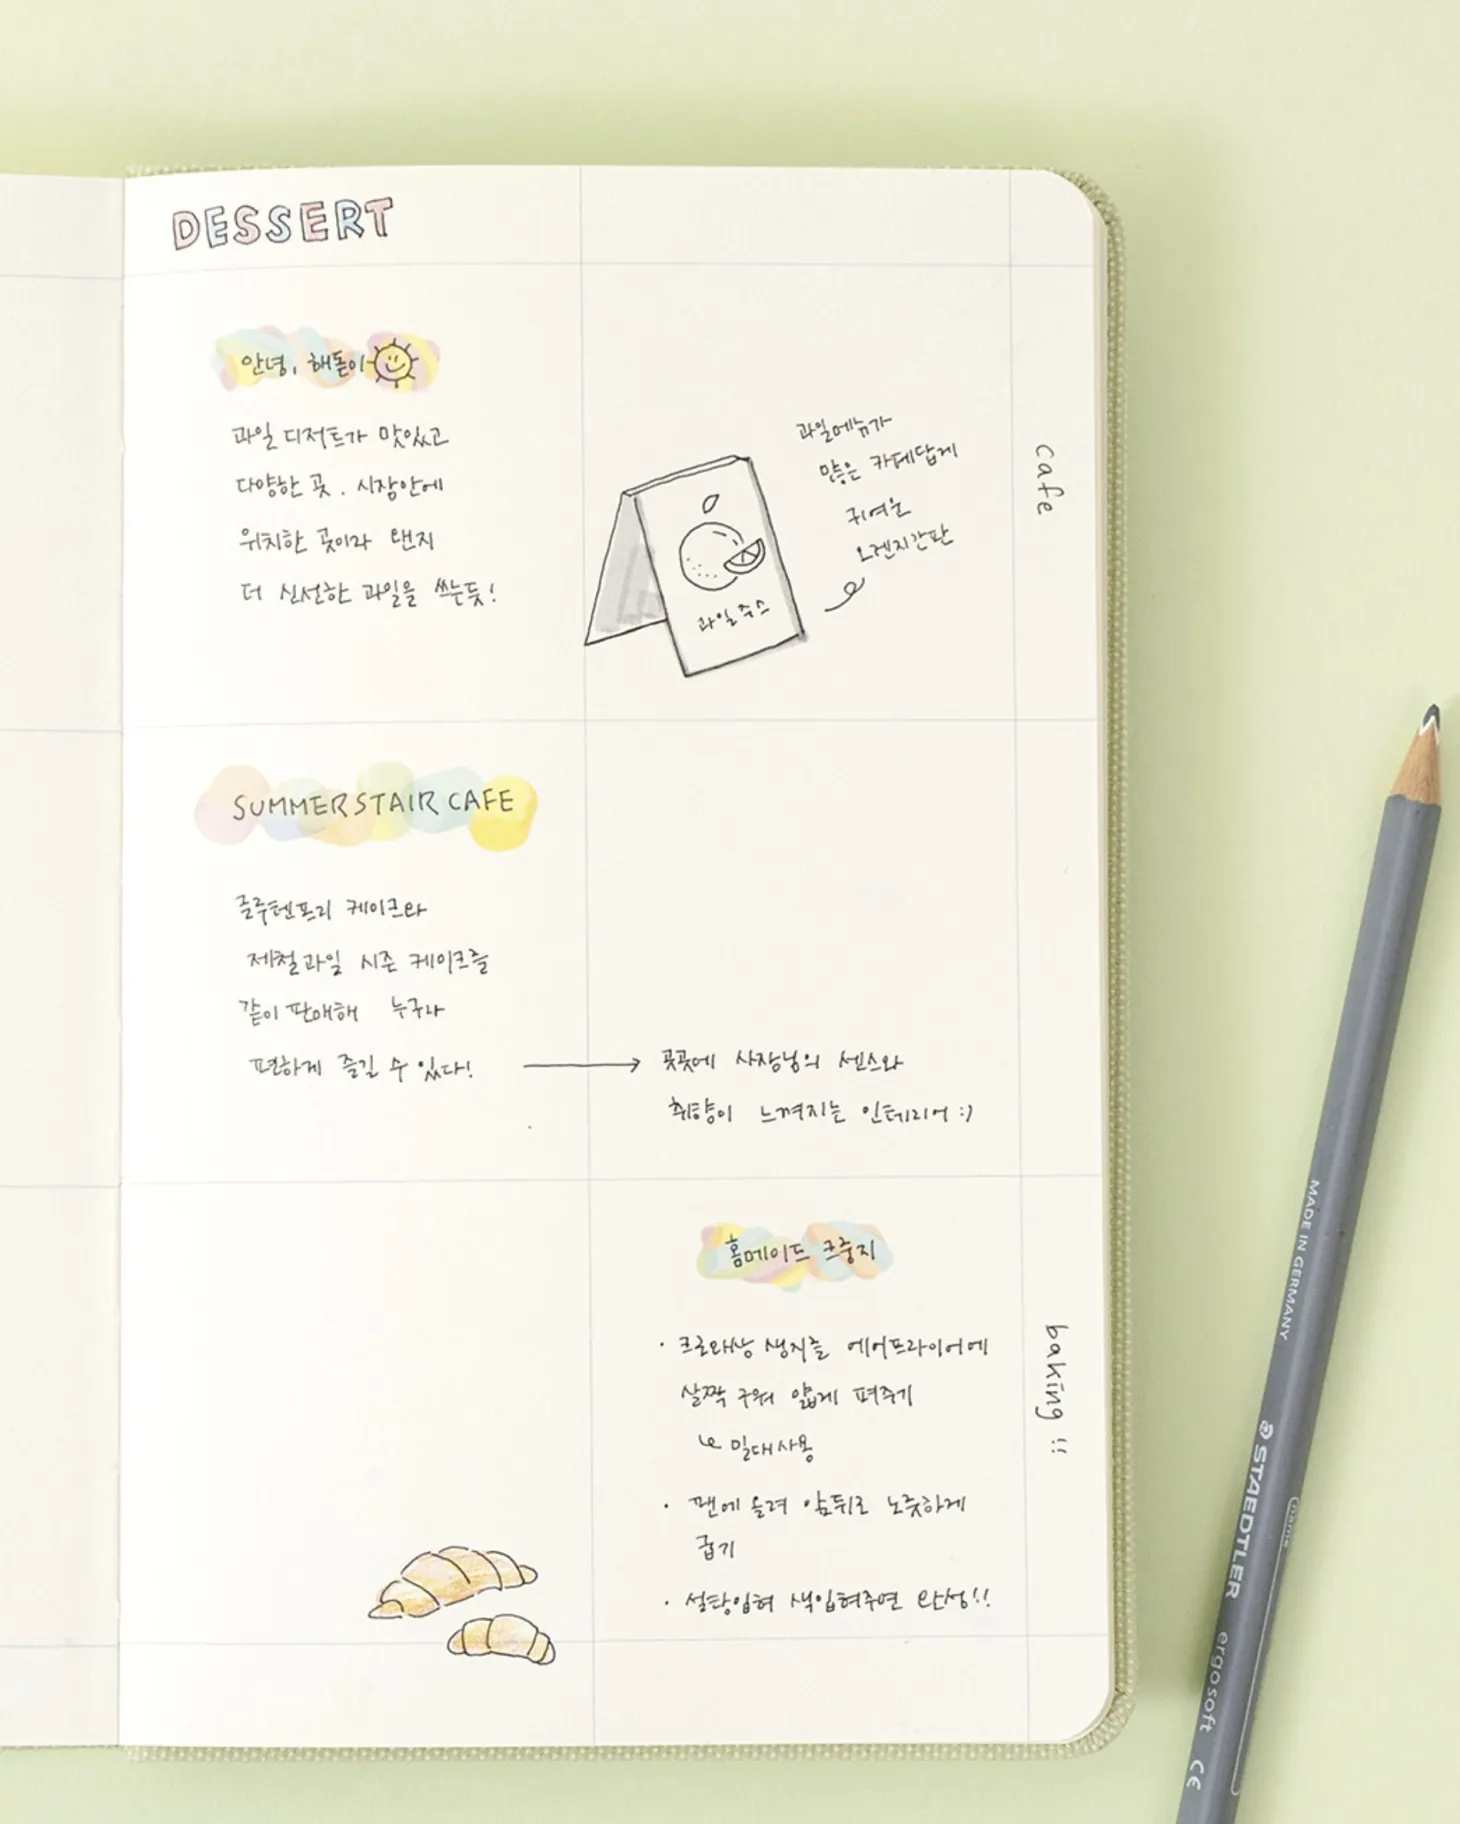 DESSERT
안녕, 해돌이
과일 디저트가 맛있고
다양한 곳. 시장안에
위치한 곳이라 왠지
더 신선한 과일을 쓰는듯!
과일주스
과일메뉴가
많은 카페답게
귀여운
오렌지간판
cafe
SUMMER STAIR CAFE
글루텐프리 케이크와
제철과일 시즌 케이크를
같이 판매해 누구나
편하게 즐길 수 있다!
곳곳에 사장님의 센스와
취향이 느껴지는 인테리어 :)
홈메이드 크룽지
· 크로와상 생지를 에어프라이어에
살짝 구워 얇게 펴주기
밀대사용
· 팬에 올려 앞뒤로 노릇하게
굽기
· 설탕입혀 색입혀주면 완성!!
baking!!
MADE IN GERMANY
STAEDTLER
ergosoft
name
CE